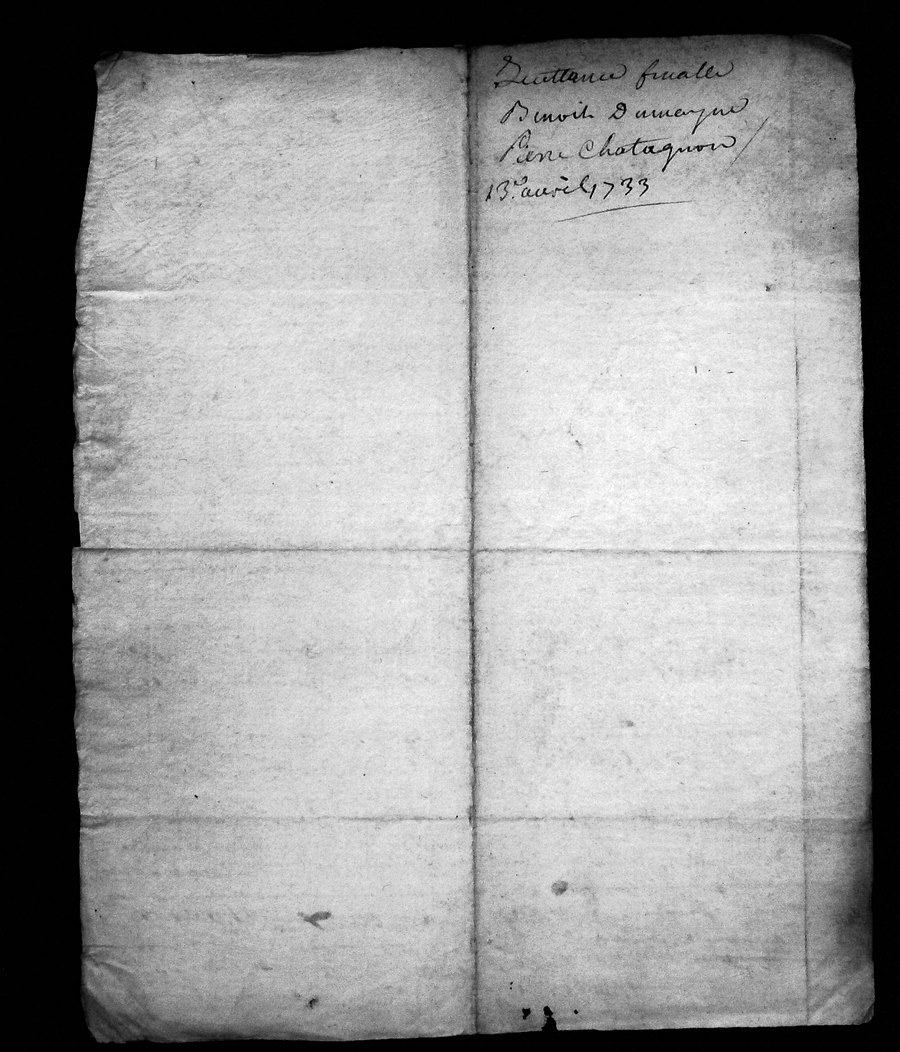 Quittance finalle
Benoit Dumayne
Pierre Chatagnon /
13.e auvril 1733